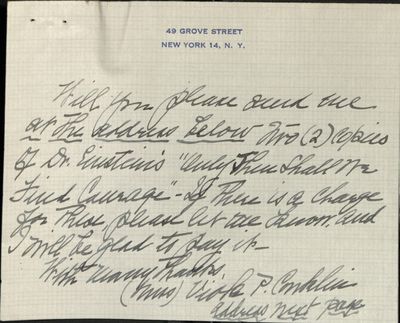 49 GROVE STREET
NEW YORK 14, N. Y.
Will you please send me
at the address below two (2) copies
of Dr. Einstein's "Only Then Shall We
Find Courage" - If there is a charge
for these, please let me know and
I will be glad to pay it -
With many thanks,
(Miss) Viola P. Conklin
address next page